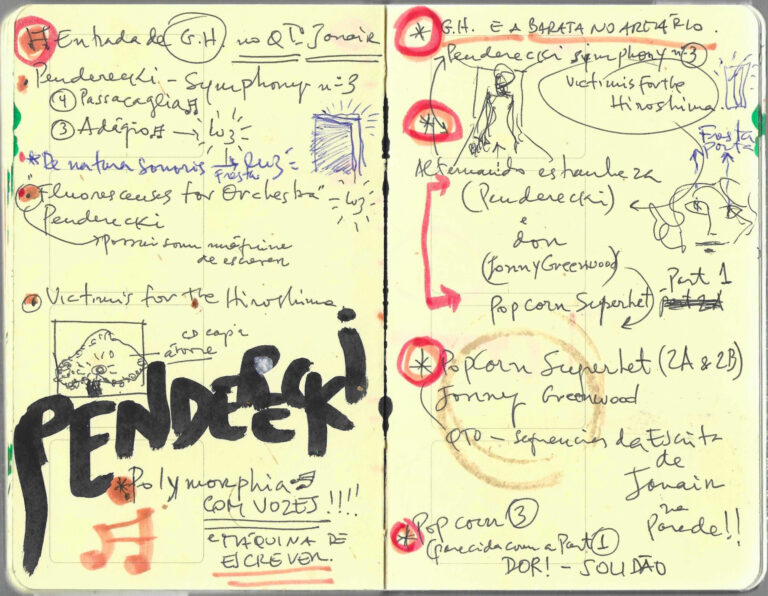 Entrada de G.H. no QTº Janair
Penderecki - Symphony nº3
④ Passacaglia
③ Adágio → luz
* De natura sonoris → Luz
Fresta
"Fluorescences for Orchestra" - luz
Penderecki
possui som máquina
de escrever
Victimis for the Hiroshima
PENDERECKI
* Polymorphia
COM VOZES!!!!
e MÁQUINA DE
ESCREVER.
* G.H. E A BARATA NO ARMÁRIO.
Penderecki symphony nº3
Victimis for the
Hiroshima.
*
Fresta
porta
Alternando estranheza
(Penderecki)
e
dor
(Jonny Greenwood)
Popcorn Superhet Part 1
* Popcorn Superhet (2A & 2B)
Jonny Greenwood
QTO - sequencias da Escrita
de
Janair
na
Parede!!
* Popcorn ③
(parecida com a Part ①
DOR! - SOLIDÃO